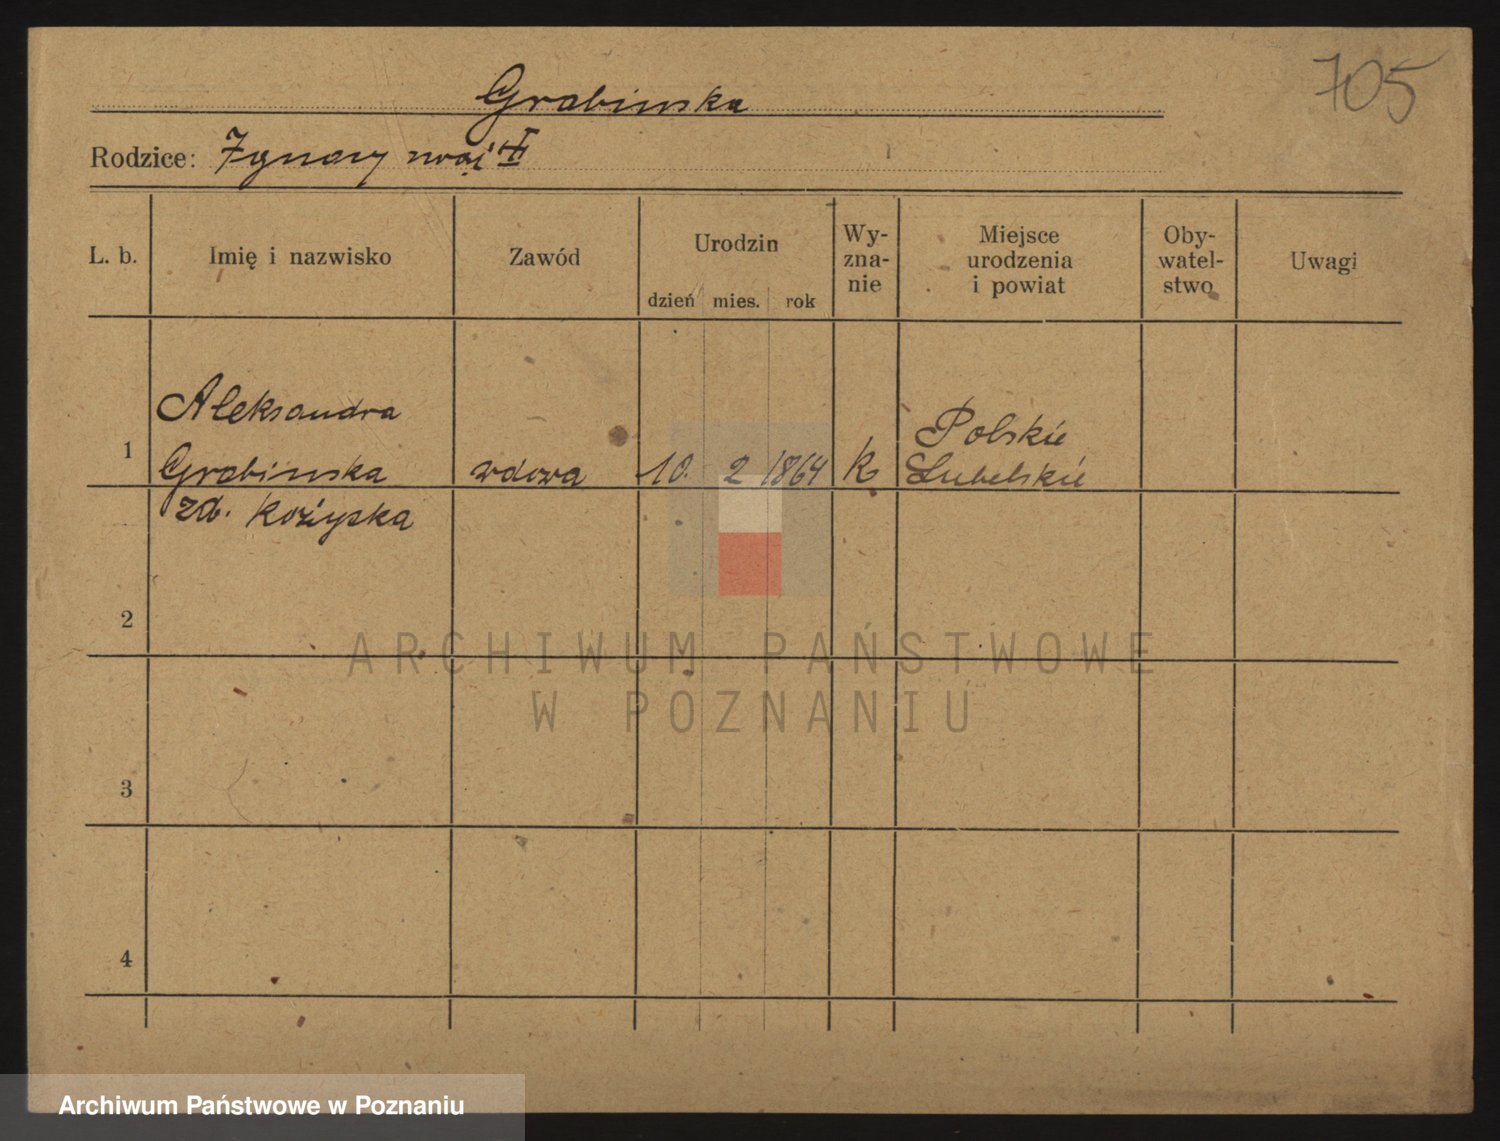 705
Grabinska
Rodzice: Ignacy mąż
L. b. Imię i nazwisko Zawód Urodzin dzień mies. rok Wy-zna-nie Miejsce urodzenia i powiat Oby-watel-stwo Uwagi
1 Aleksandra
Grabinska wdowa 10. 2 1864 k Polskie Lubelskie
zd. Kożyska
2
ARCHIWUM PAŃSTWOWE
W POZNANIU
3
4
Archiwum Państwowe w Poznaniu